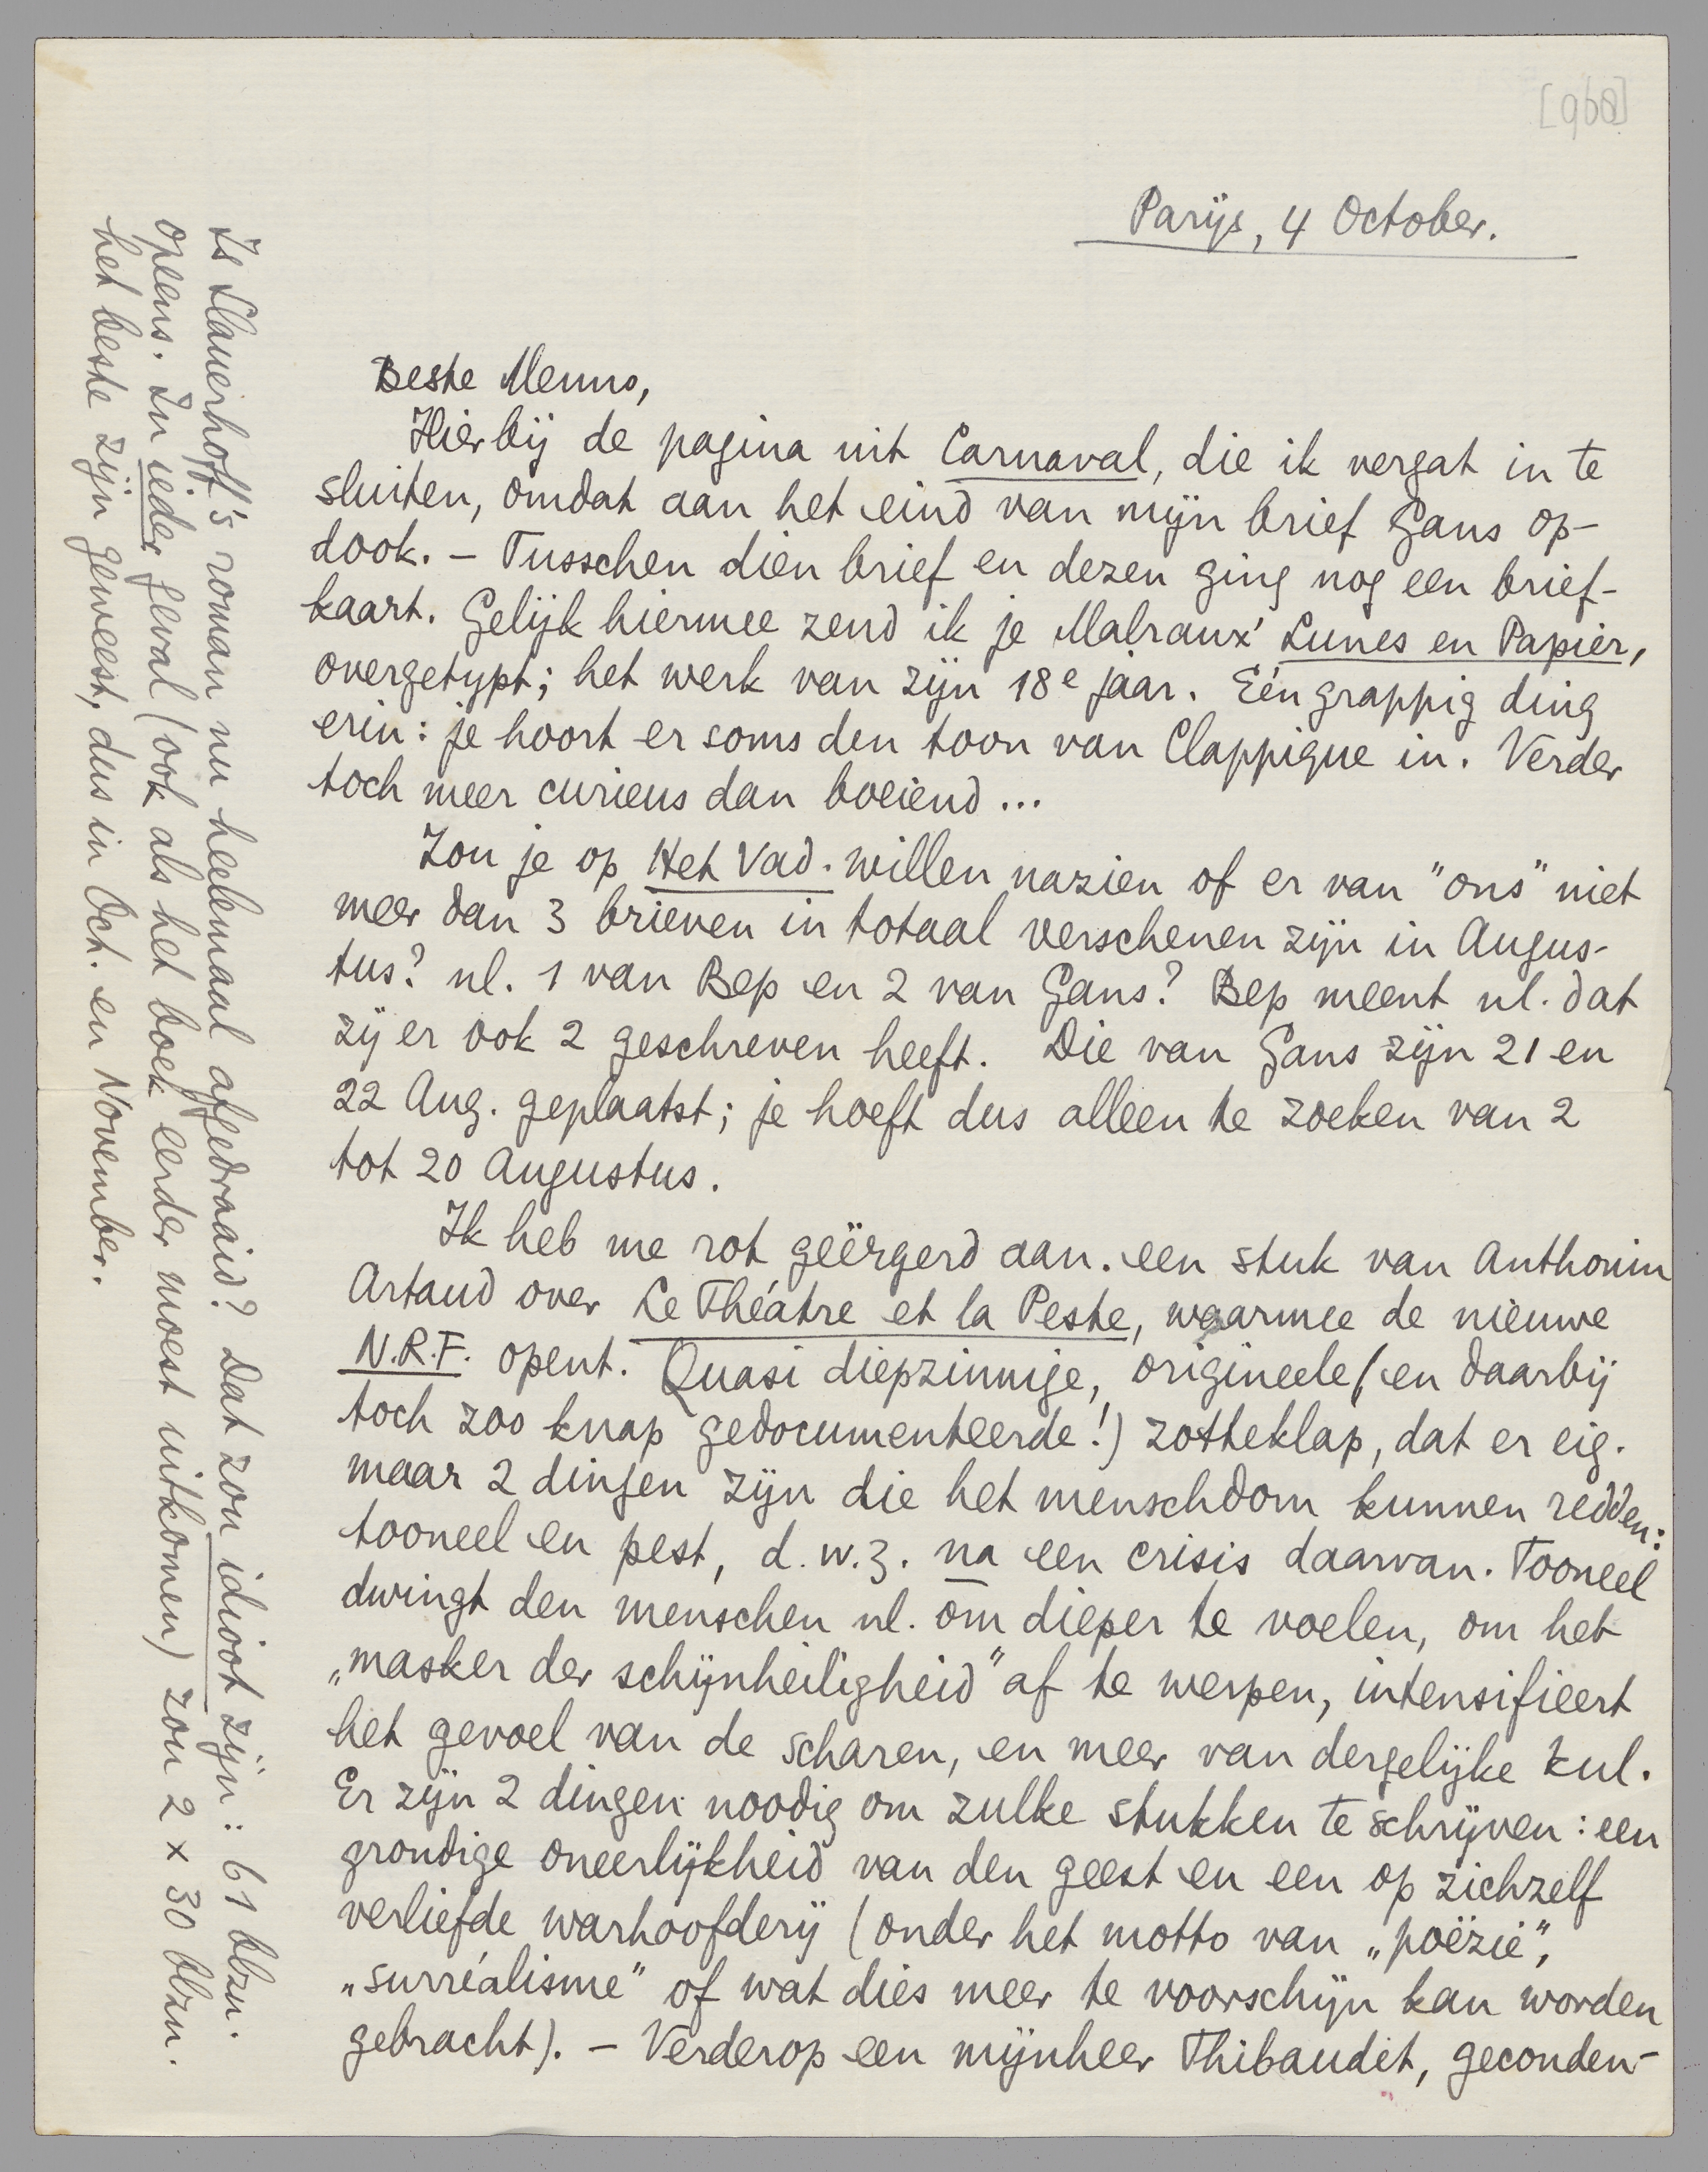 [968]
Parijs, 4 October.
Beste Menno,
Hierbij de pagina uit Carnaval, die ik vergat in te
sluiten, omdat aan het eind van mijn brief Gans op-
dook. – Tusschen dien brief en dezen ging nog een brief-
kaart. Gelijk hiermee zend ik je Malraux' Lunes en Papier,
overgetypt; het werk van zijn 18e jaar. Eén grappig ding
erin: je hoort er soms den toon van Clappique in. Verder
toch meer curieus dan boeiend...
Zou je op Het Vad. willen nazien of er van "ons" niet
meer dan 3 brieven in totaal verschenen zijn in Augus-
tus? nl. 1 van Bep en 2 van Gans? Bep meent nl. dat
zij er ook 2 geschreven heeft. Die van Gans zijn 21 en
22 Aug. geplaatst; je hoeft dus alleen te zoeken van 2
tot 20 Augustus.
Ik heb me rot geërgerd aan een stuk van Anthonin
Artaud over Le Théatre et la Peste, waarmee de nieuwe
N.R.F. opent. Quasi diepzinnige, origineele (en daarbij
toch zoo knap gedocumenteerde!) zotteklap, dat er eig.
maar 2 dingen zijn die het menschdom kunnen redden:
tooneel en pest, d.w.z. na een crisis daarvan. Tooneel
dwingt den menschen nl. om dieper te voelen, om het
„masker der schijnheiligheid" af te werpen, intensifieert
het gevoel van de scharen, en meer van dergelijke kul.
Er zijn 2 dingen noodig om zulke stukken te schrijven: een
grondige oneerlijkheid van den geest en een op zichzelf
verliefde warhoofderij (onder het motto van „poëzie",
„surréalisme" of wat dies meer te voorschijn kan worden
gebracht). – Verderop een mijnheer Thibaudet, geconden-
Is Slauerhoff's roman nu heelemaal afgedraaid? Dat zou idioot zijn: 61 blzn.
opeens. In ieder geval (ook als het boek eerder moest uitkomen) zou 2 x 30 blzn.
het beste zijn geweest, dus in Oct. en November.